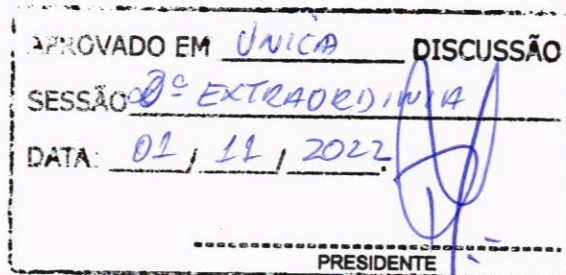 APROVADO EM ÚNICA DISCUSSÃO
SESSÃO EXTRAORDINÍA
DATA: 01 / 11 / 2022
PRESIDENTE